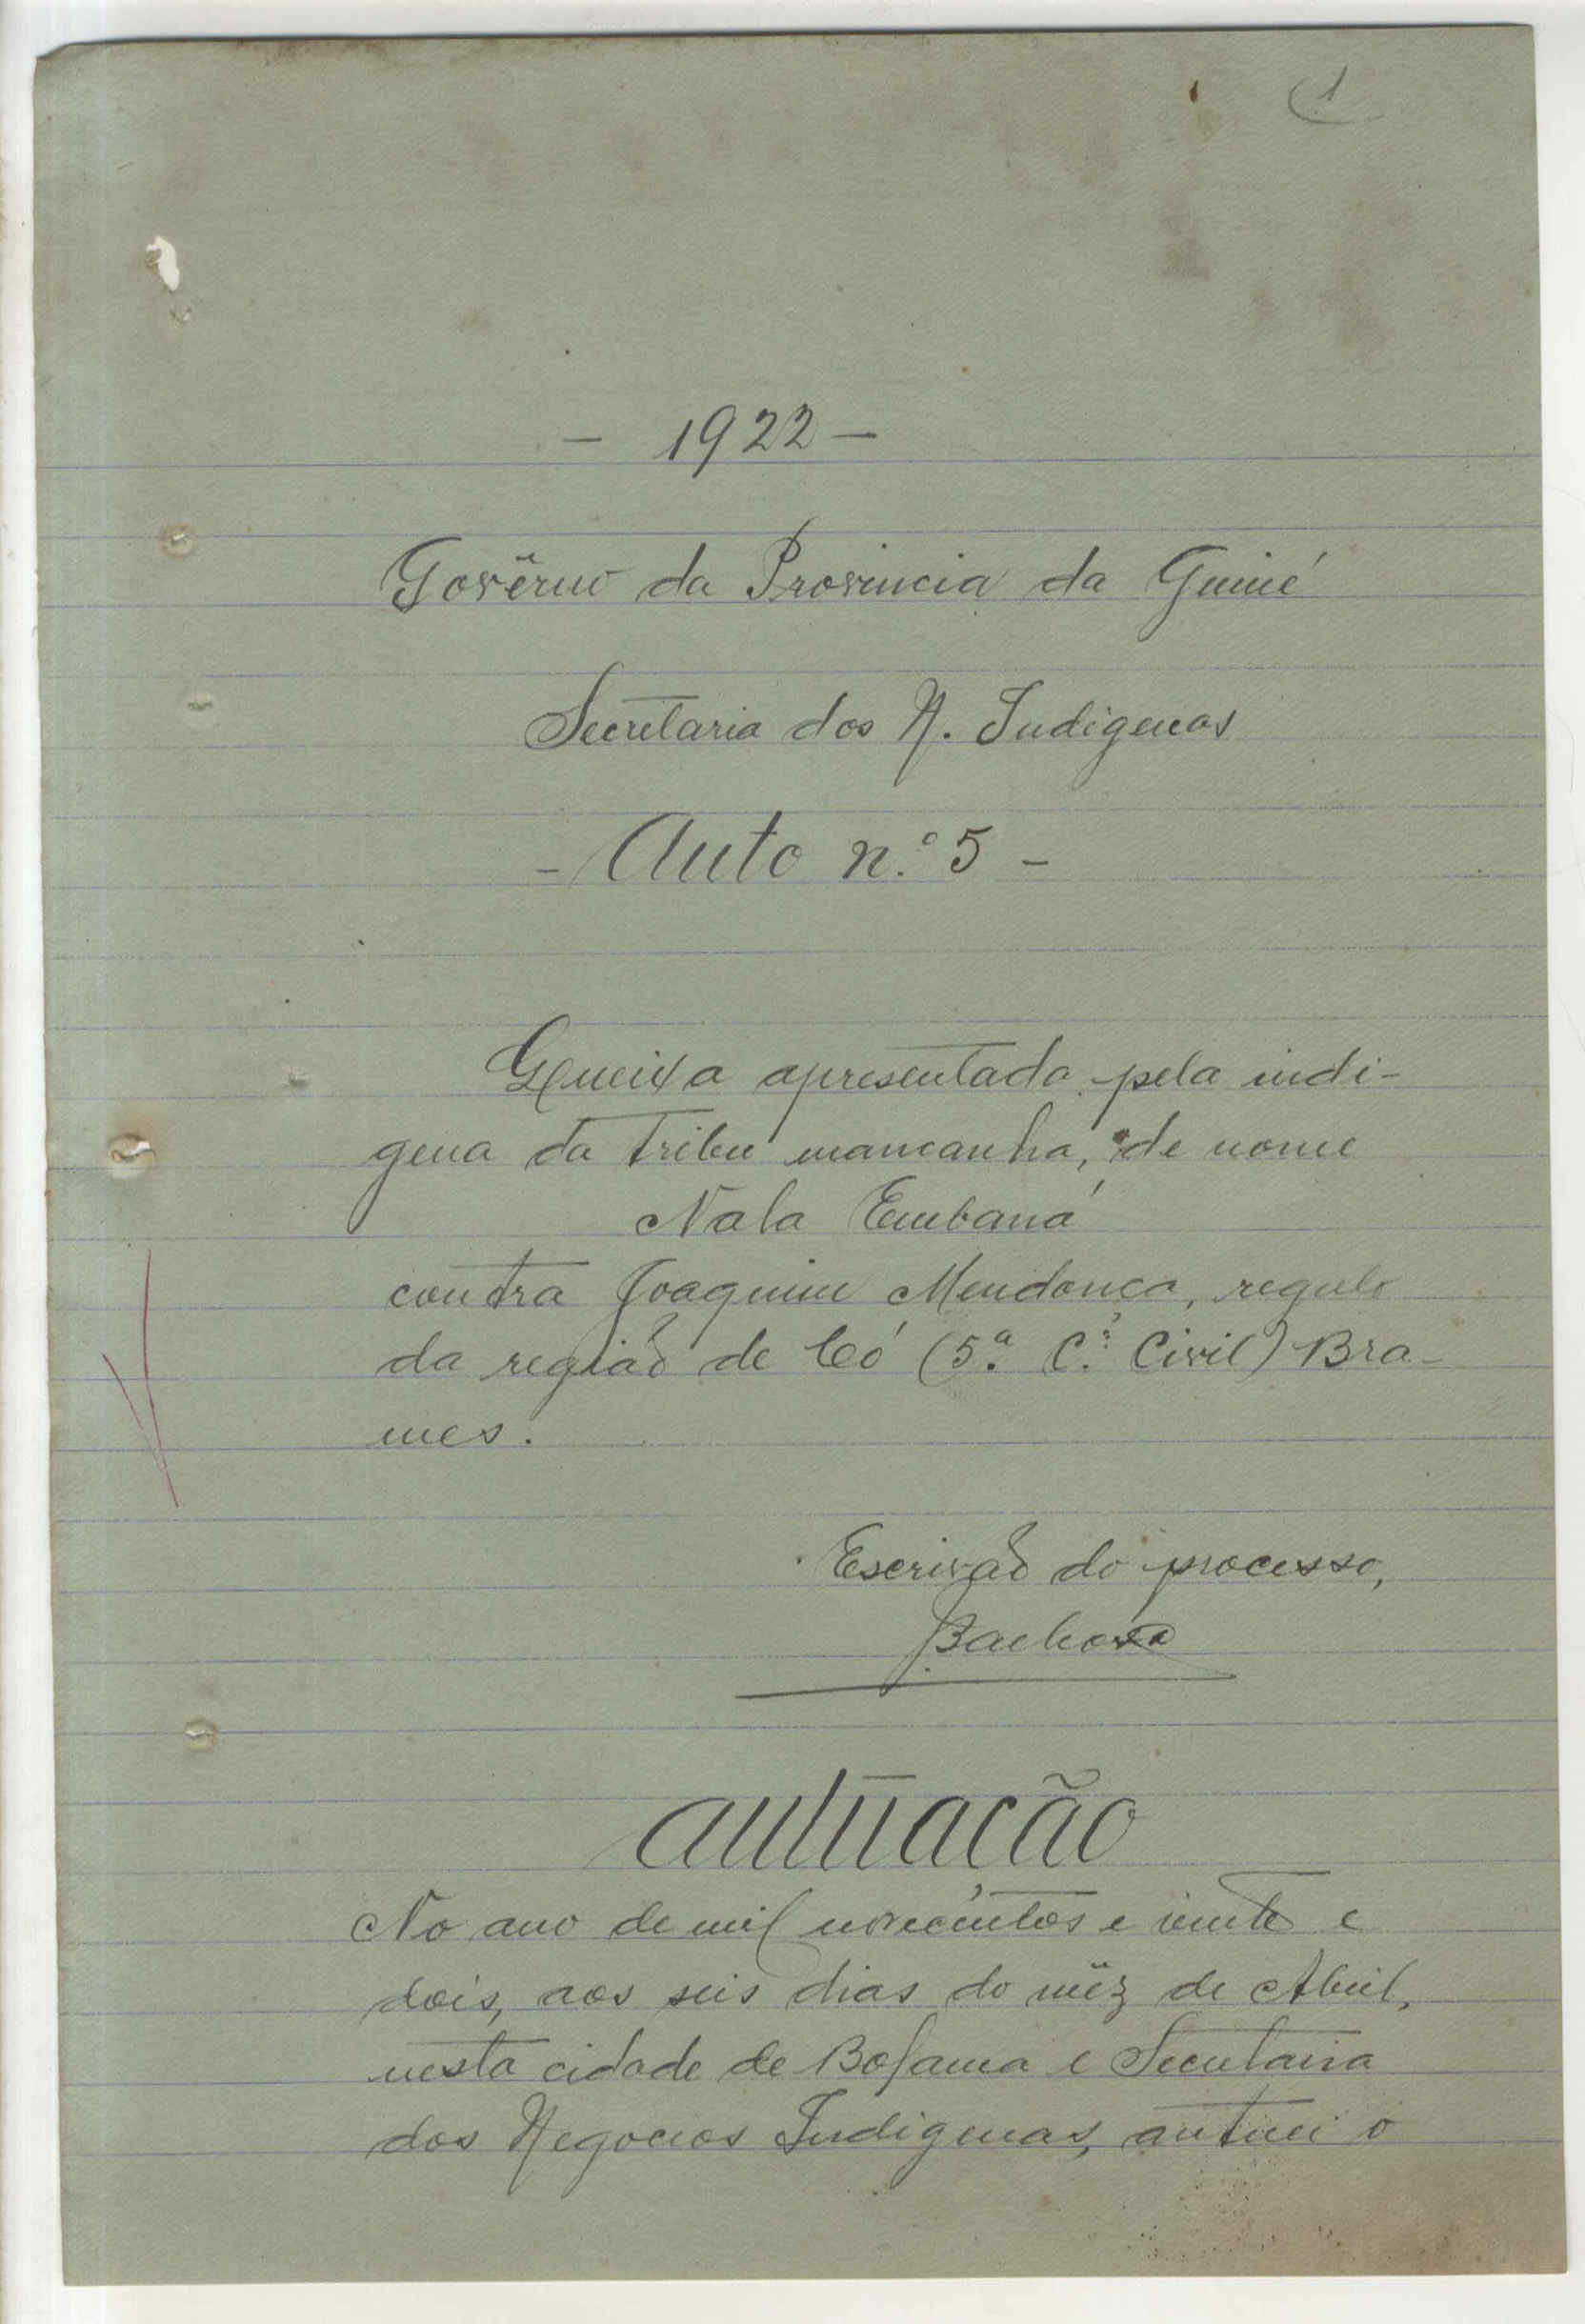 1
- 1922 -
Govêrno da Provincia da Guiné
Secretaria dos N. Indigenas
- Auto n.º 5 -
Queixa apresentada pela indi-
gena da tribu mancanha, de nome
Nala Embaná
contra Joaquim Mendonça, regulo
da região de Có (5.ª C.ª Civil) Bra-
mes.
Escrivão do processo,
Barbosa
autuação
No ano de mil novecentos e vinte e
dois, aos seis dias do mêz de Abril,
nesta cidade de Bolama e Secretaria
dos Negocios Indigenas, autuei o